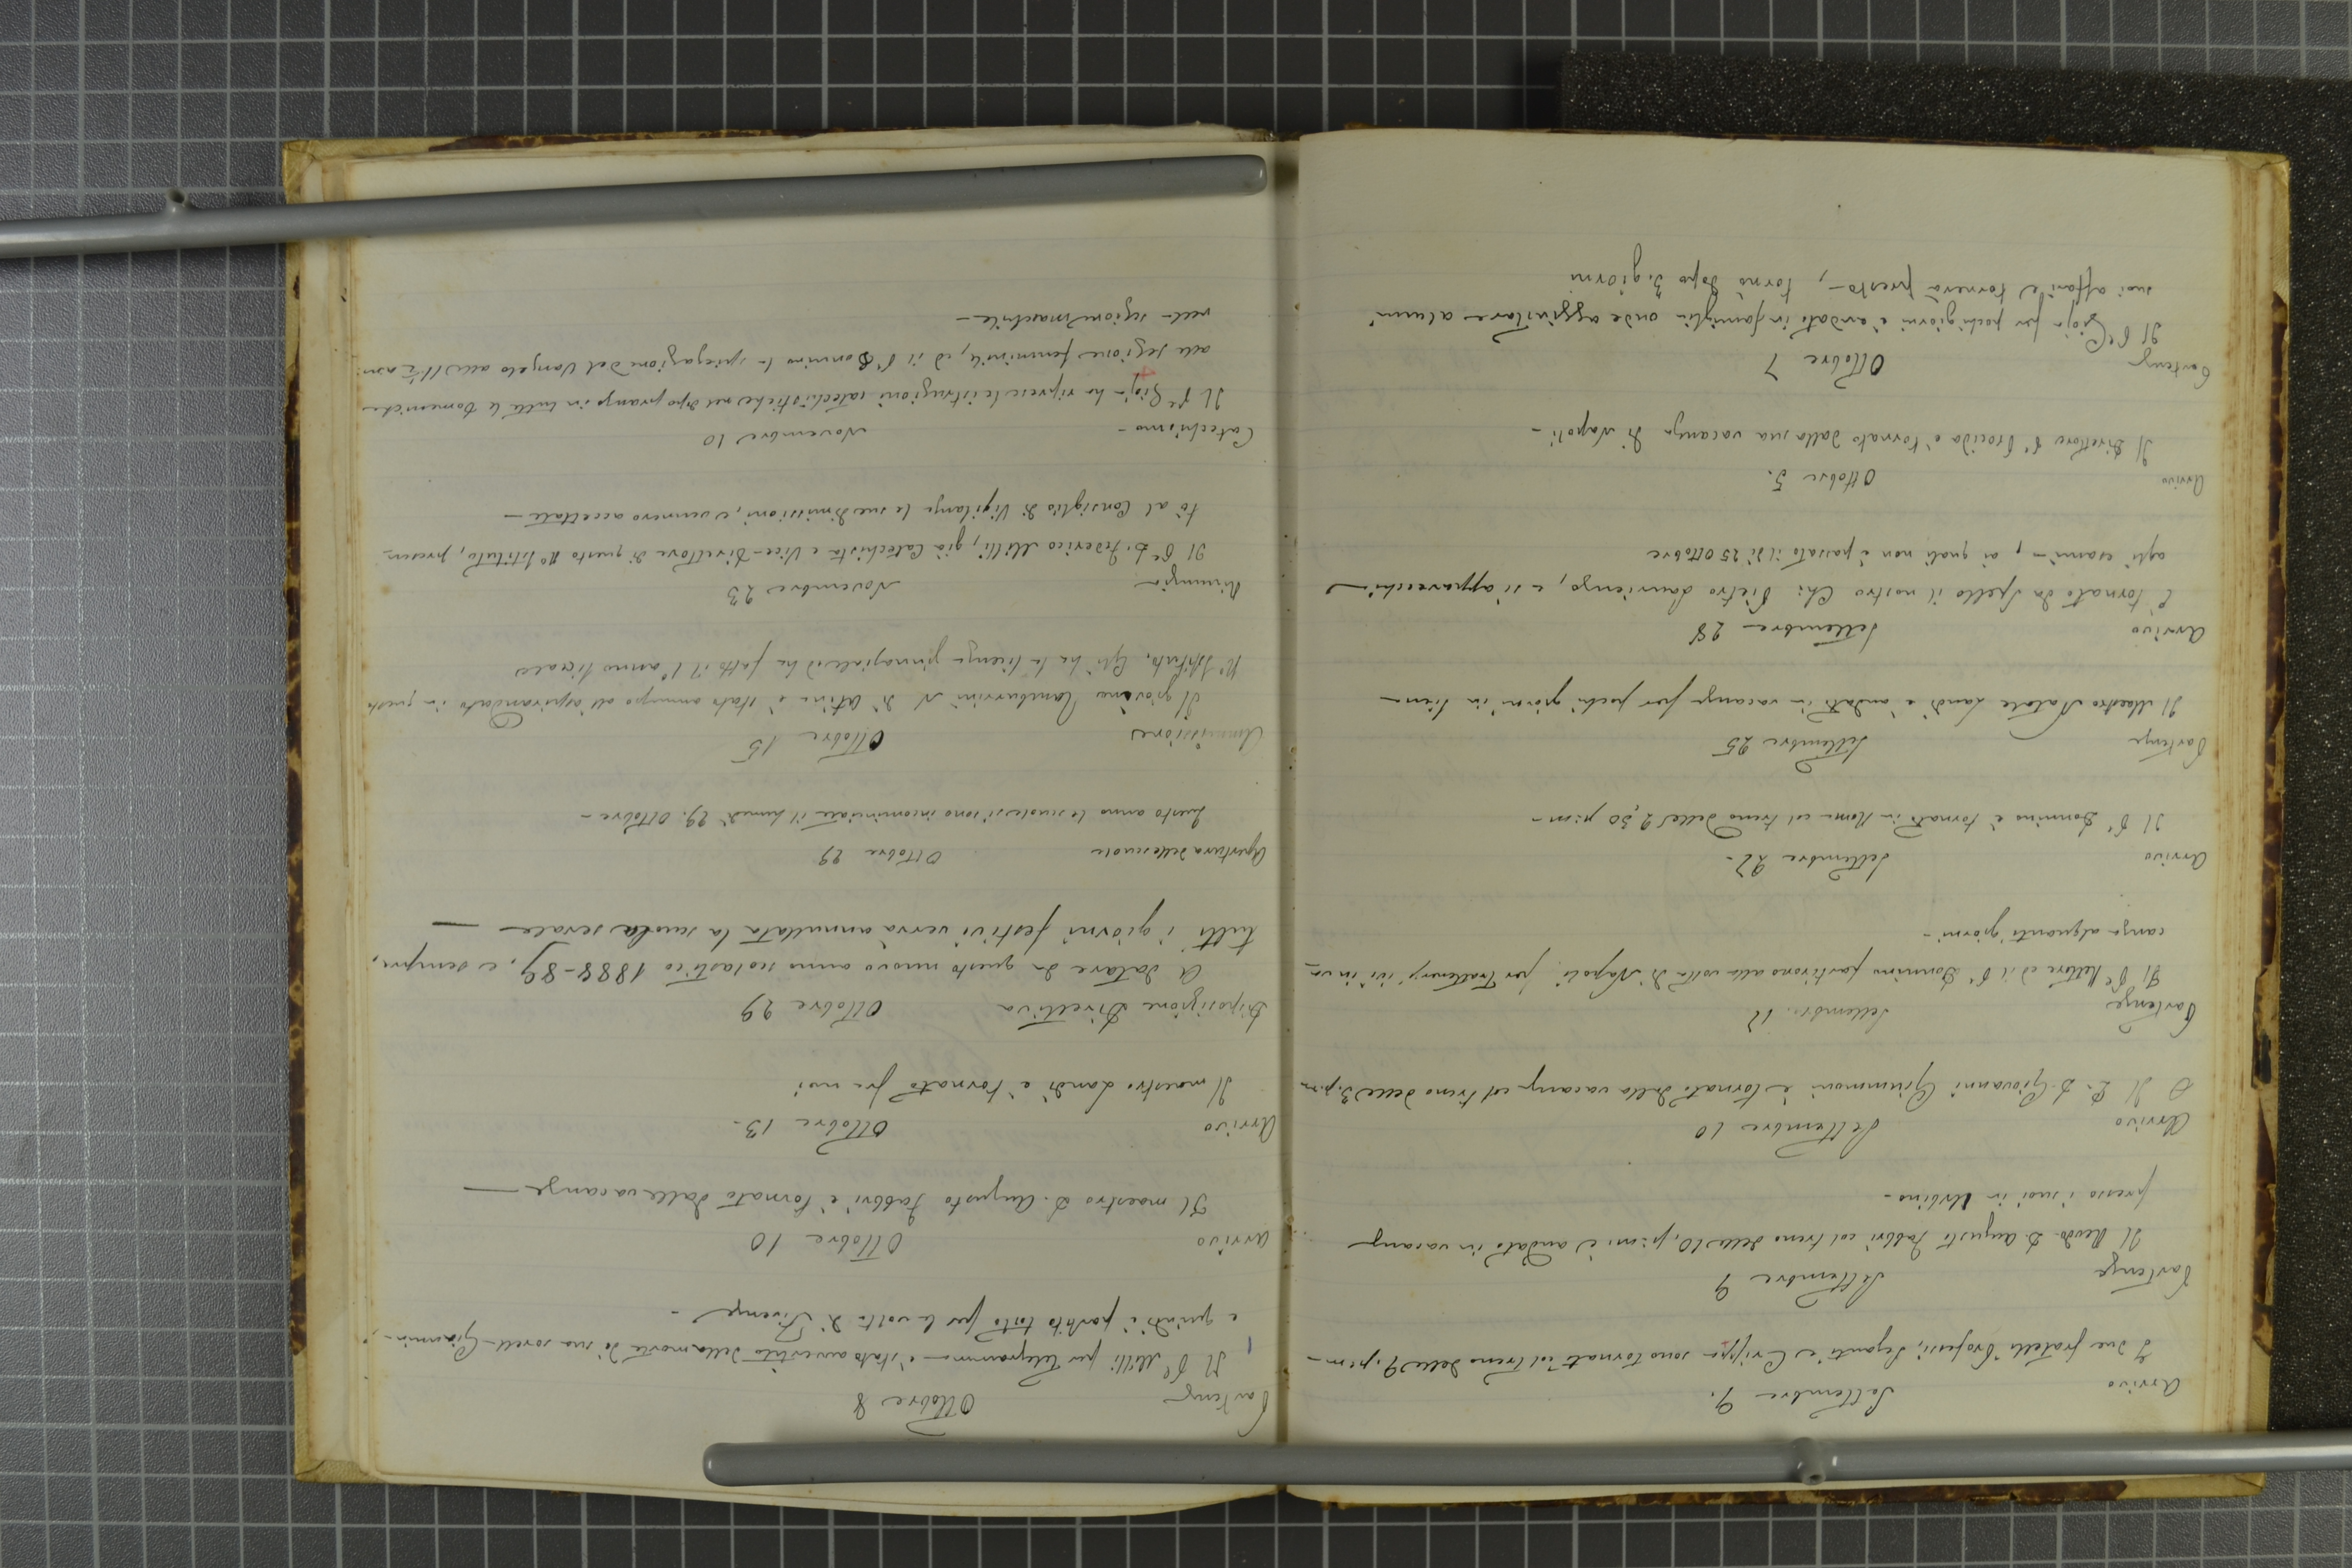 Arrivo Settembre 9.
I due fratelli Professi, Seganti e Crippa sono tornati col treno delle 9. p:m—
Partenza Settembre 9
Il Revdo D. Augusto Fabbri col treno delle 10, p:m: è andato in vacanza
presso i suoi in Urbino—
Arrivo Settembre 10
Il D. Giovanni Grummoni è tornato dalla vacanza col treno delle 3. p.m
Partenza Settembre 12
Il Pe Rettore ed il Pe Donnino partirono alla volta di Napoli per trattenersi ivi in va-
canza alquanti giorni—
Arrivo Settembre 22—
Il Pe Donnino è tornato in Roma col treno delle 2,30 p:m—
Partenza Settembre 25
Il Maestro Natale Landi è andato in vacanza per pochi giorni in Siena—
Arrivo Settembre 28
È tornato da Spello il nostro Chi: Pietro Lauvienzo, e si apparecchia
agli esami—, ai quali non è passato il dì 25 Ottobre
Arrivo Ottobre 5.
Il Direttore Pe Procida è tornato dalla sua vacanza di Napoli—
Partenza Ottobre 7
Il Pe Gioja per pochi giorni è andato in famiglia onde aggiustare alcuni
suoi affari e tornerà presto—, tornò dopo 3. giorni
Partenza Ottobre 8
Il Pe Milli per telegramma è stato avvertito della morte di sua sorella Giannina,
e quindi è partito tosto per la volta di Firenze—
Arrivo Ottobre 10
Il maestro D. Augusto Fabbri è tornato dalla vacanza—
Arrivo Ottobre 13—
Il maestro Landi è tornato fra noi
Disposizione Direttiva Ottobre 29
A datare da questo nuovo anno scolastico 1888-89, e sempre,
tutti i giorni festivi verrà annullata la scuola serale—
Apertura delle scuole Ottobre 29
Questo anno le scuole si sono incominciate il lunedì 29. Ottobre—
Ammissione Ottobre 15
Il giovane Tamburrini N di Atina è stato ammesso all'aspirandato in questo
No Istituto. Egli ha la licenza ginnaziale ed ha fatto il 1° anno liceale
Rinunzia Novembre 23
Il Pe D. Federico Milli, già Catechista e Vice-Direttore di questo No Istituto, presen-
tò al Consiglio di Vigilanza le sue dimissioni, e vennero accettate—
Catechismo— Novembre 10
Il Pe Gioja ha riprese le istruzioni catechistiche nel dopo pranzo in tutte le Domeniche
4
alla sezione femminile, ed il Pe Donnino la spiegazione del Vangelo alle 11½ am:
nella sezione maschile—